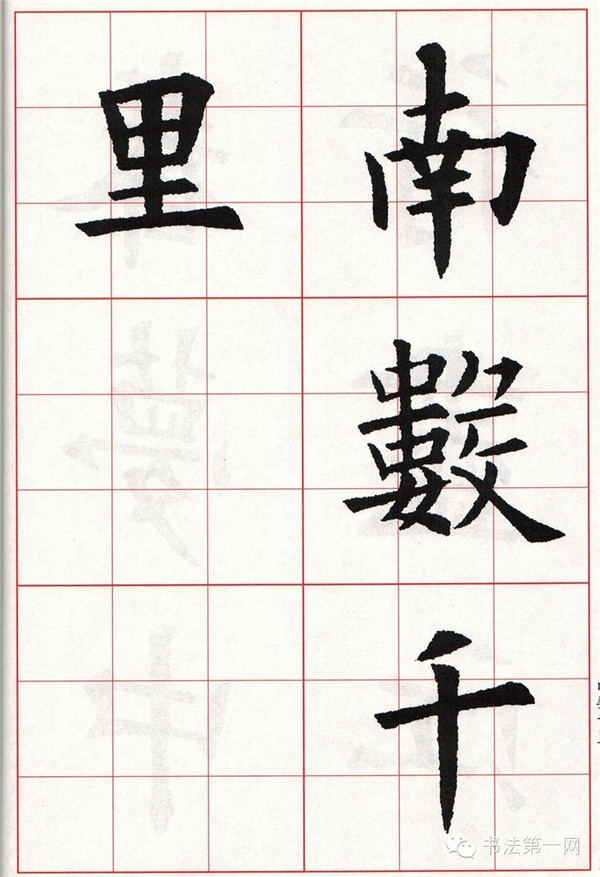 南數千
里
书法第一网